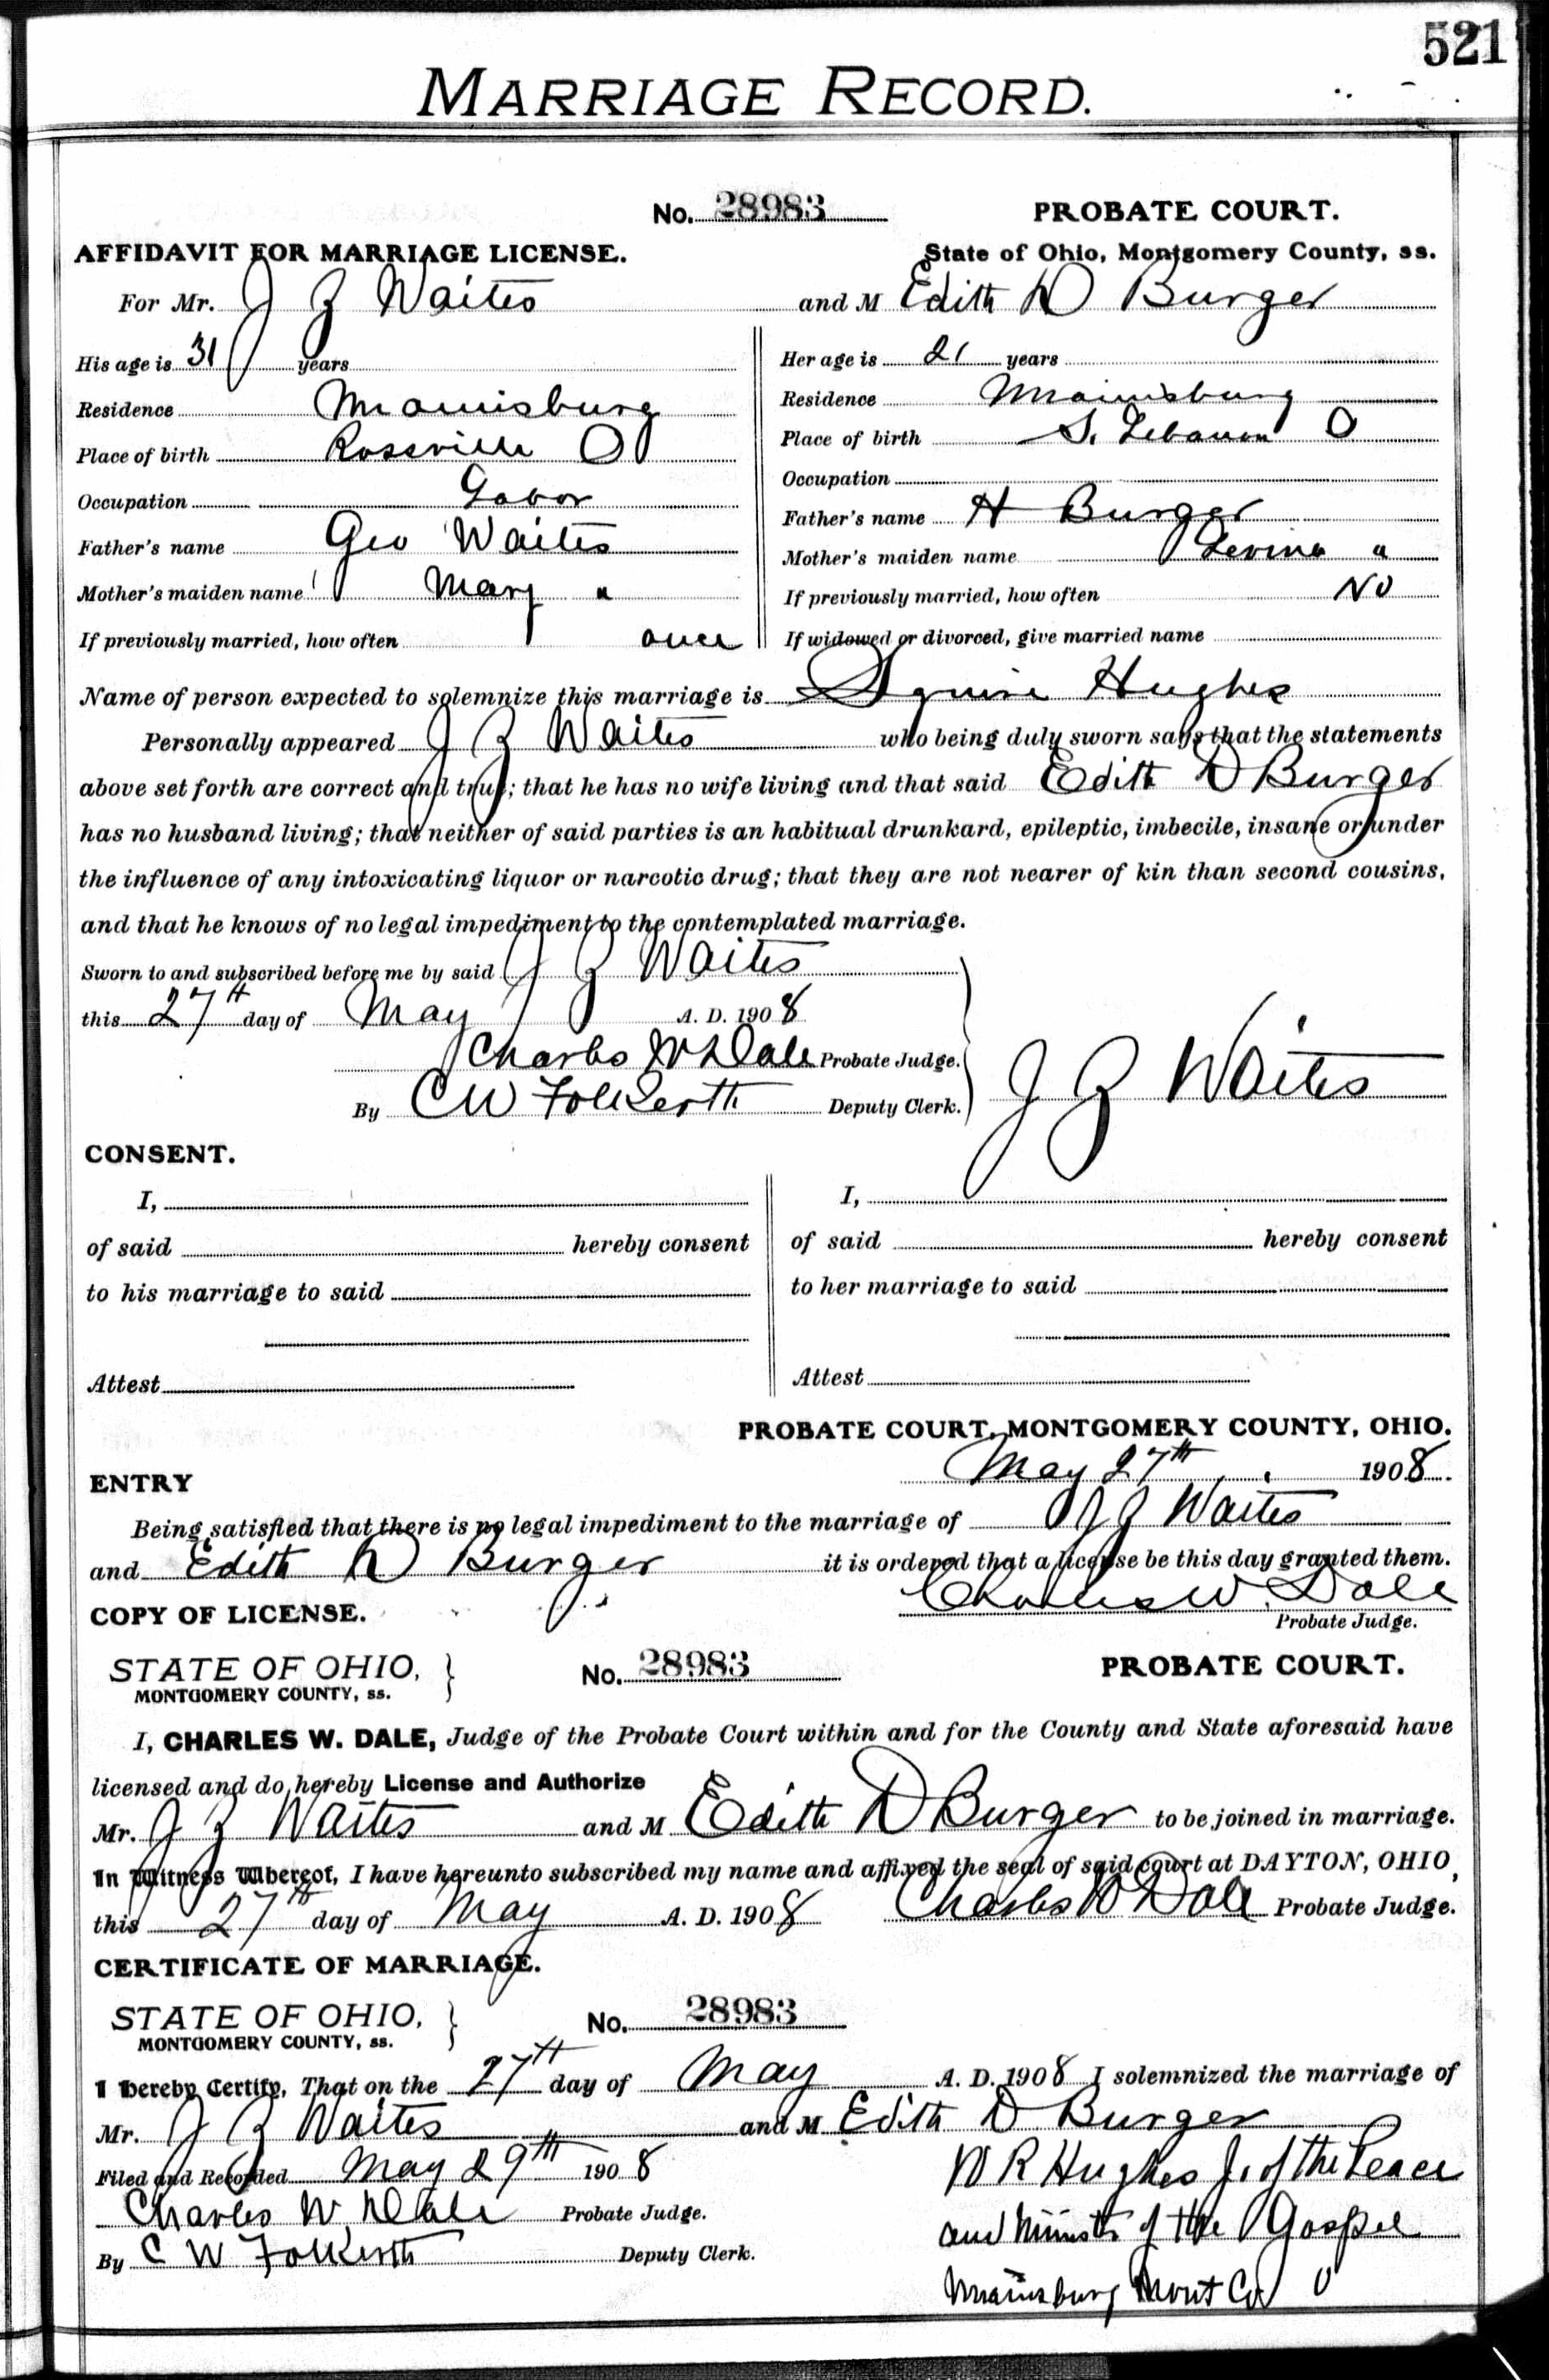 521
MARRIAGE RECORD.
No. 28983 PROBATE COURT.
AFFIDAVIT FOR MARRIAGE LICENSE. State of Ohio, Montgomery County, ss.
For Mr. J Z Waites and M Edith D Burger
His age is 31 years
Residence Miamisburg
Place of birth Roseville O
Occupation Labor
Father's name Geo Waites
Mother's maiden name Mary "
If previously married, how often once
Her age is 21 years
Residence Miamisburg
Place of birth S. Lebanon O
Occupation
Father's name H Burger
Mother's maiden name Levina "
If previously married, how often No
If widowed or divorced, give married name
Name of person expected to solemnize this marriage is Squire Hughes
Personally appeared J Z Waites who being duly sworn says that the statements
above set forth are correct and true; that he has no wife living and that said Edith D Burger
has no husband living; that neither of said parties is an habitual drunkard, epileptic, imbecile, insane or under
the influence of any intoxicating liquor or narcotic drug; that they are not nearer of kin than second cousins,
and that he knows of no legal impediment to the contemplated marriage.
Sworn to and subscribed before me by said J Z Waites
this 27th day of May A. D. 1908
Charles W Dale Probate Judge.
By C W Folkerth Deputy Clerk.
J Z Waites
CONSENT.
I,
of said hereby consent
to his marriage to said
Attest
I,
of said hereby consent
to her marriage to said
Attest
PROBATE COURT, MONTGOMERY COUNTY, OHIO.
ENTRY May 27th 1908.
Being satisfied that there is no legal impediment to the marriage of J Z Waites
and Edith D Burger it is ordered that a license be this day granted them.
Charles W. Dale
COPY OF LICENSE. Probate Judge.
STATE OF OHIO, } No. 28983 PROBATE COURT.
MONTGOMERY COUNTY, ss.
I, CHARLES W. DALE, Judge of the Probate Court within and for the County and State aforesaid have
licensed and do hereby License and Authorize
Mr. J Z Waites and M Edith D Burger to be joined in marriage.
In Witness Whereof, I have hereunto subscribed my name and affixed the seal of said court at DAYTON, OHIO,
this 27th day of May A. D. 1908 Charles W Dale Probate Judge.
CERTIFICATE OF MARRIAGE.
STATE OF OHIO, } No. 28983
MONTGOMERY COUNTY, ss.
I hereby Certify, That on the 27th day of May A. D. 1908 I solemnized the marriage of
Mr. J Z Waites and M Edith D Burger
Filed and Recorded May 29th 1908
Charles W Dale Probate Judge.
By C W Folkerth Deputy Clerk.
W R Hughes J. of the Peace
and Minister of the Gospel
Miamisburg Mont Co O